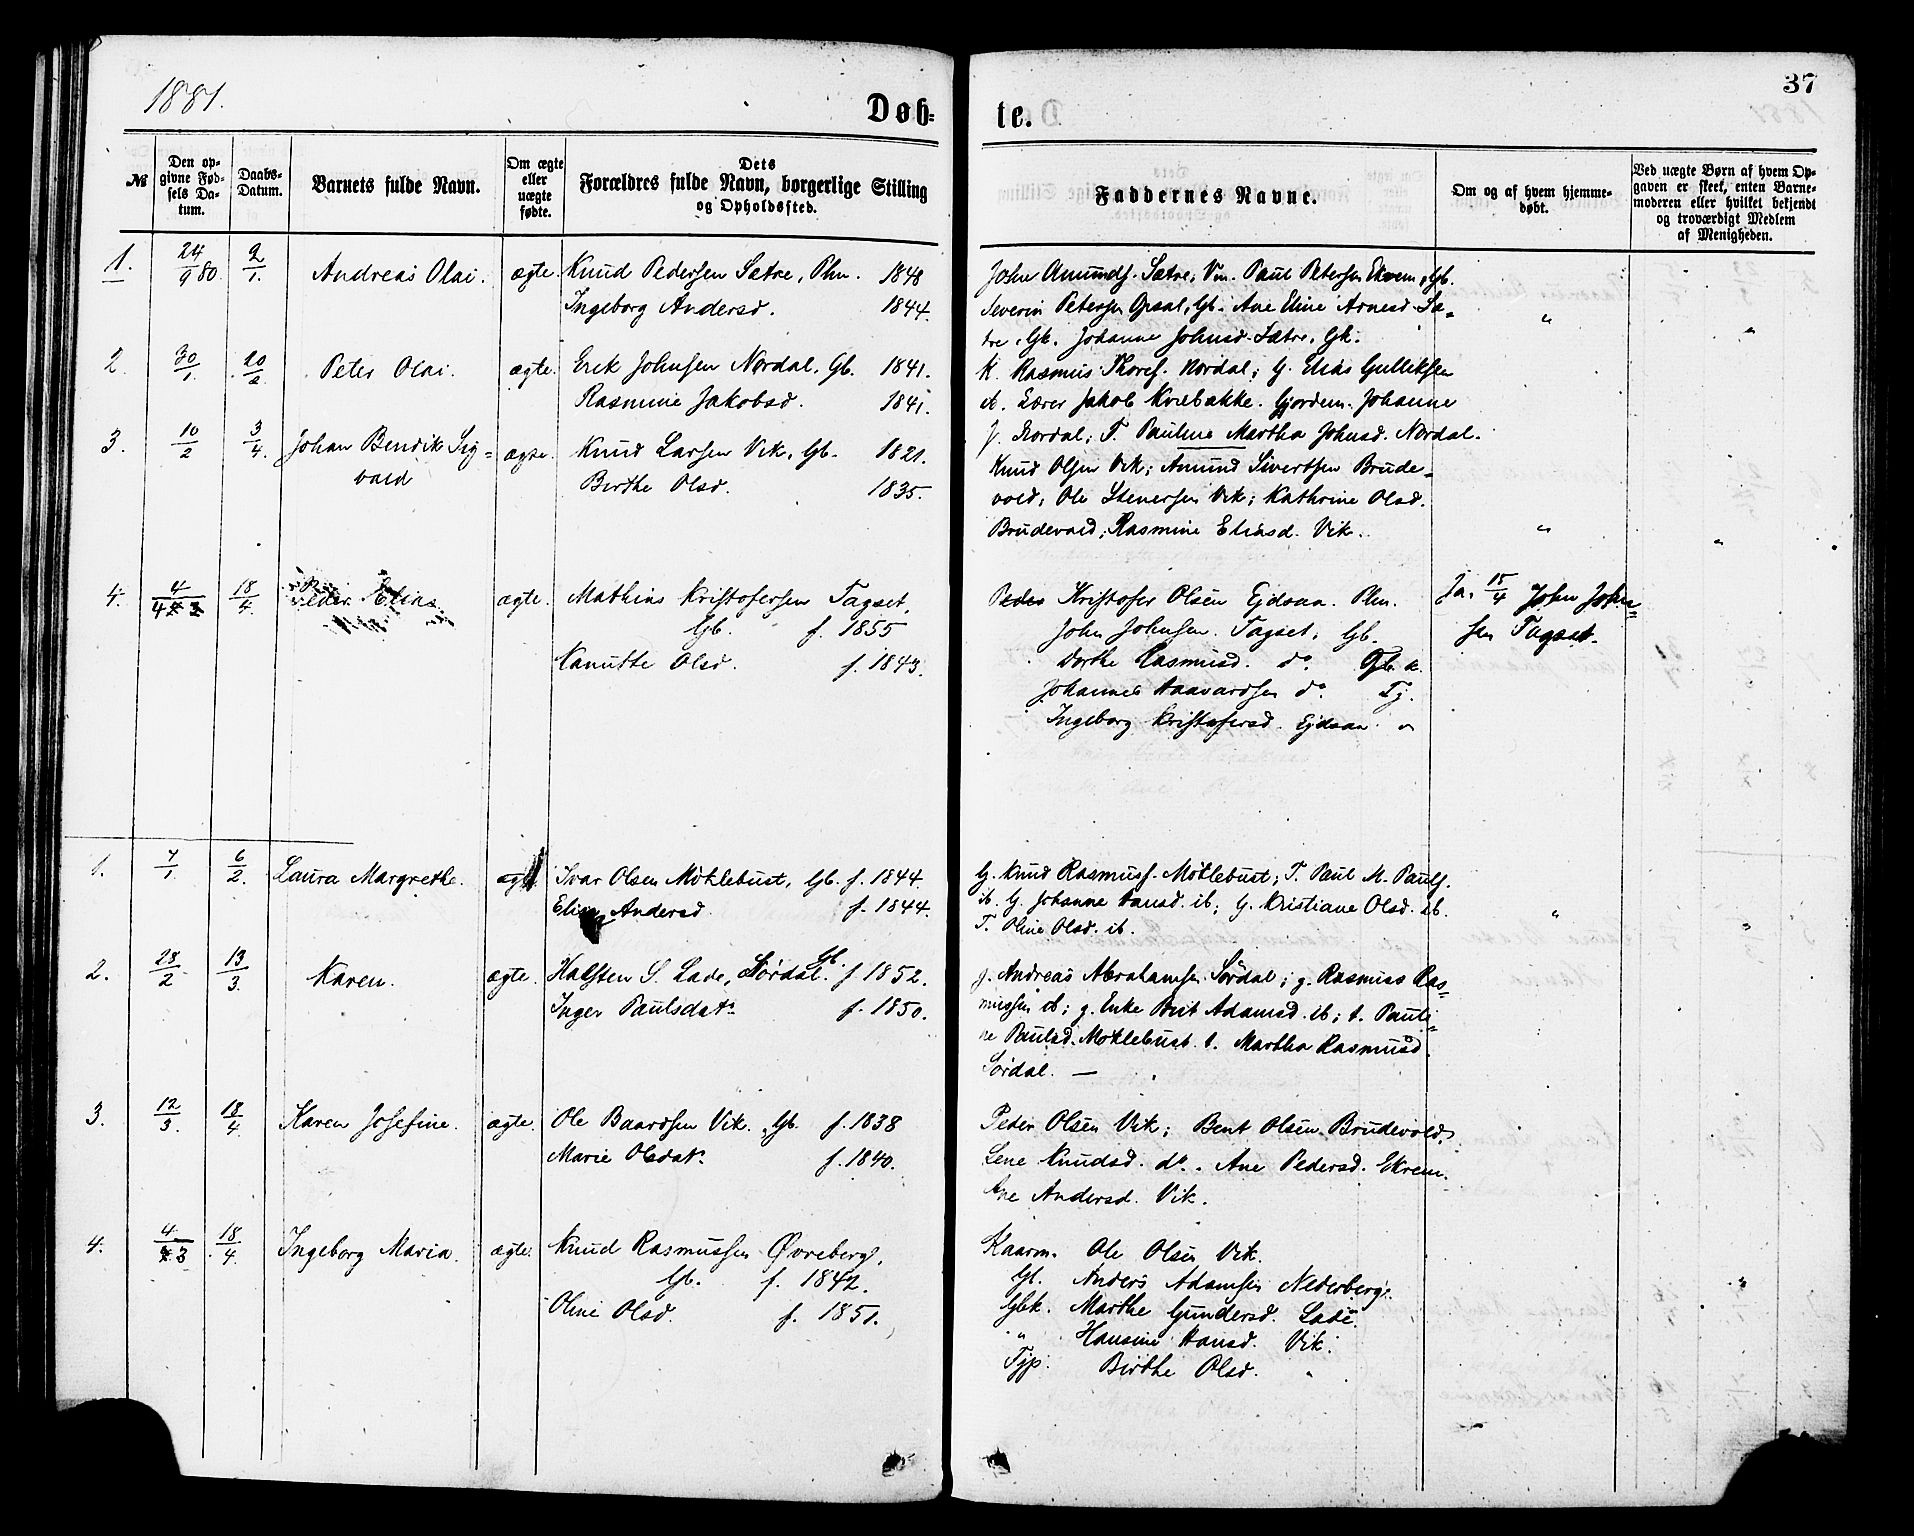 1881.
Døb-
te.
37
№
Den op-
givne Fød-
sels Da-
tum.
Daabs-
Datum.
Barnets fulde Navn.
Om ægte
eller
uægte
fødte.
Dets
Forældres fulde Navn, borgerlige Stilling
og Opholdssted.
Faddernes Navne.
Om og af hvem hjemme-
døbt.
Ved uægte Børn af hvem Op-
gaven er skeet, enten Barne-
moderen eller hvilket bekjendt
og troværdigt Medlem
af Menigheden.
1. 24/9 80. 2/1. Andreas Olai. ægte. Knud Pedersen Sætre, Plm. 1848
Ingeborg Andersd. 1844.
John Amunds. Sætre, Paul Petersen Ekrem, Gb.
Severin Petersen Opsal, Gb. Ane Eline Arnesd. Sæ-
tre, Gk. Johanne Johnsd. Sætre, Gk.
2. 30/1. 20/2 Peter Olai. ægte. Erik Johnsen Nordal, Gb. 1841.
Rasmine Jakobsd. 1841.
K. Rasmus Thores. Nordal; G. Elias Gulliksen
ib. Lærer Jakob Kvebække. Gjordem. Johanne
J. Nordal; T. Pauline Martha Johnsd. Nordal.
3. 10/2 3/4. Johan Bendik Sig-
vald
ægte. Knud Larsen Vik, Gb. 1821.
Berthe Olsd. 1835.
Knud Olsen Vik; Amund Sivertsen Brude-
vold; Ole Stenersen Vik; Kathrine Olsd.
Brudevold; Rasmine Eliasd. Vik.
4. 4/3 18/4. Peder Elias. ægte. Mathias Kristofersen Tagset,
Gb. f. 1855
Kanutte Olsd. f. 1843.
Kristofer Olsen Ejdsaa. Plm.
John Johnsen. Tagset, Gb.
Dorthe Rasmusd. do. Gb. k.
Johannes Haavardsen do. Tj.
Ingeborg Kristofersd. Ejdsaa. "
Ja, 15/4 John John-
sen Tagset.
1. 7/1. 6/2. Laura Margrethe. ægte Ivar Olsen Møklebust, Gb. f. 1844.
Andersd. f. 1844.
G. Knud Rasmuss. Møklebust; T. Paul M. Pauls.
ib. G. Johanne Hansd. ib; G. Kristiane Olsd. ib.
T. Oline Olsd. ib.
2. 28/2 13/3. Karen. ægte. Halsten S. Lade, Sørdal. Gb. f. 1852.
Inger Paulsdatr f. 1850.
g. Andreas Abrahamsen Sørdal; g. Rasmus Ras-
mussen ib; g. Enke Brit Adamsd. ib; t. Pauli-
ne Paulsd. Møklebust. t. Martha Rasmusd.
Sørdal. —
3. 12/3. 18/4 Karen Josefine. ægte. Ole Baardsen Vik. Gb. f. 1838
Marie Olsdatr. f. 1840.
Peder Olsen Vik; Bent Olsen Brudevold,
Lene Knudsd. do. Ane Pedersd. Ekrem.
Ane Andersd. Vik.
4. 4/3 18/4. Ingeborg Maria. ægte. Knud Rasmussen Øvreberg,
Gb. f. 1842.
Oline Olsd. f. 1851.
Kaarm. Ole Olsen Vik.
Gb. Anders Adamsen Nederberg.
Gbk. Marthe Gundersd. Lade.
" Hansine Hansd. Vik.
Tjp. Birthe Olsd. "